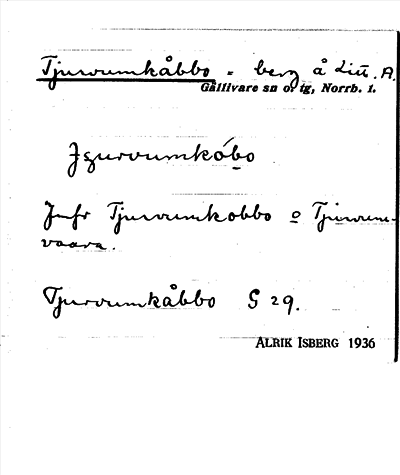 Tjuroumkåbbo - berg å Litt. A.
Gällivare sn o. tg, Norrb. l.
Jfr Tjuroumkobbo o Tjuroum-
vaara.
Tjuroumkåbbo S 29.
ALRIK ISBERG 1936